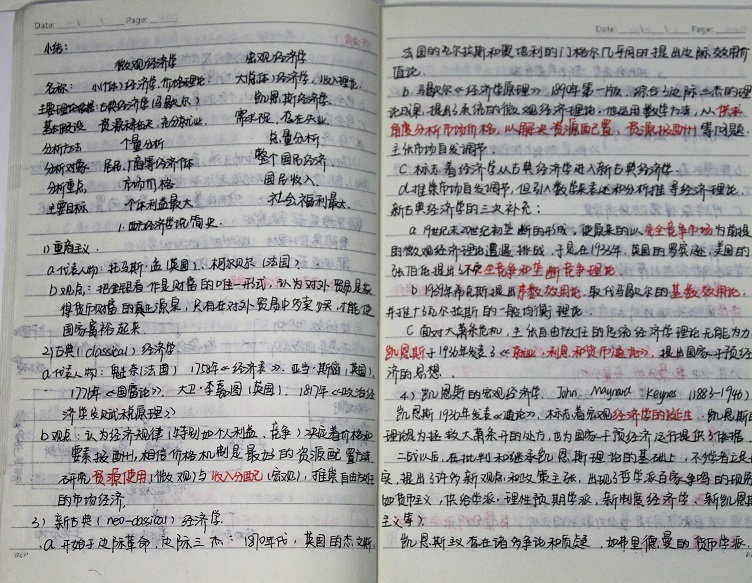 Date: Page:
小结:
微观经济学 宏观经济学
名称: 小(个体)经济学,价格理论 大(总体)经济学,收入理论
主要理论依据:古典经济学(马歇尔) 凯恩斯经济学
基本假设 资源稀缺,充分就业 需求不足,存在失业
分析方法 个量分析 总量分析
分析对象 居民,厂商等经济体 整个国民经济
分析重点 市场价格 国民收入
主要目标 个体利益最大 社会福利最大
1.西方经济学说简史
1)重商主义.
a.代表人物:托马斯·孟(英国)、柯尔贝尔(法国)
b.观点:把金银看作是财富的唯一形式,认为对外贸易是获
得货币财富的真正源泉,只有在对外贸易中多卖少买,才能使
国家富裕起来.
2)古典(classical)经济学.
a.代表人物:魁奈(法国) 1758年《经济表》.亚当·斯密(英国),
1776年《国富论》. 大卫·李嘉图(英国). 1817年《政治经
济学及赋税原理》
b.观点:认为经济规律(特别如个人利益、竞争)决定着价格和
要素报酬,相信价格机制是最好的资源配置方法.
研究资源使用(微观)与收入分配(宏观),推崇自由放任
的市场经济.
3)新古典(neo-classical)经济学.
a.开始于边际革命,边际三杰:1870年代,英国的杰文斯,
Date: Page:
法国的瓦尔拉斯和奥地利的门格尔几乎同时提出边际效用价
值论.
b.马歇尔《经济学原理》1890年第一版,综合了边际三杰的理
论成果,提出了系统的微观经济理论:他运用数学方法,从供求
角度分析市场价格,以解决资源配置,资源报酬等问题.
主张市场自发调节.
C.标志着经济学从古典经济学进入新古典经济学.
d.推崇市场自发调节,但引入数学来表述和分析推导经济理论.
新古典经济学的三次补充:
a.19世纪末20世纪初垄断的形成,使原来的以完全竞争市场为前提
的微观经济理论遭遇挑战,于是在1933年,英国的罗宾逊,美国的
张伯伦提出了不完全竞争和垄断竞争理论.
b.1939年希克斯提出序数效用论,取代马歇尔的基数效用论,
并推广了瓦尔拉斯的一般均衡理论.
C.面对大萧条危机,主张自由放任的传统经济学理论无能为力.
凯恩斯于1936年发表了《就业、利息和货币通论》,提出国家干预经
济的思想.
4)凯恩斯的宏观经济学. John Maynard Keynes (1883-1946)
凯恩斯1936年发表《通论》,标志着宏观经济学的诞生.凯恩斯的
理论成为拯救大萧条开的处方,也为国家干预经济运行提供了依据.
二战以后,在批判和继承凯恩斯理论的基础上,
提出了许多新观点和政策主张,出现了哲学派百家争鸣的现
如货币主义,供给学派,理性预期学派,新制度经济学,新凯恩
主义等)
凯恩斯主义存在诸多争论和质疑,如弗里德曼的货币学派.